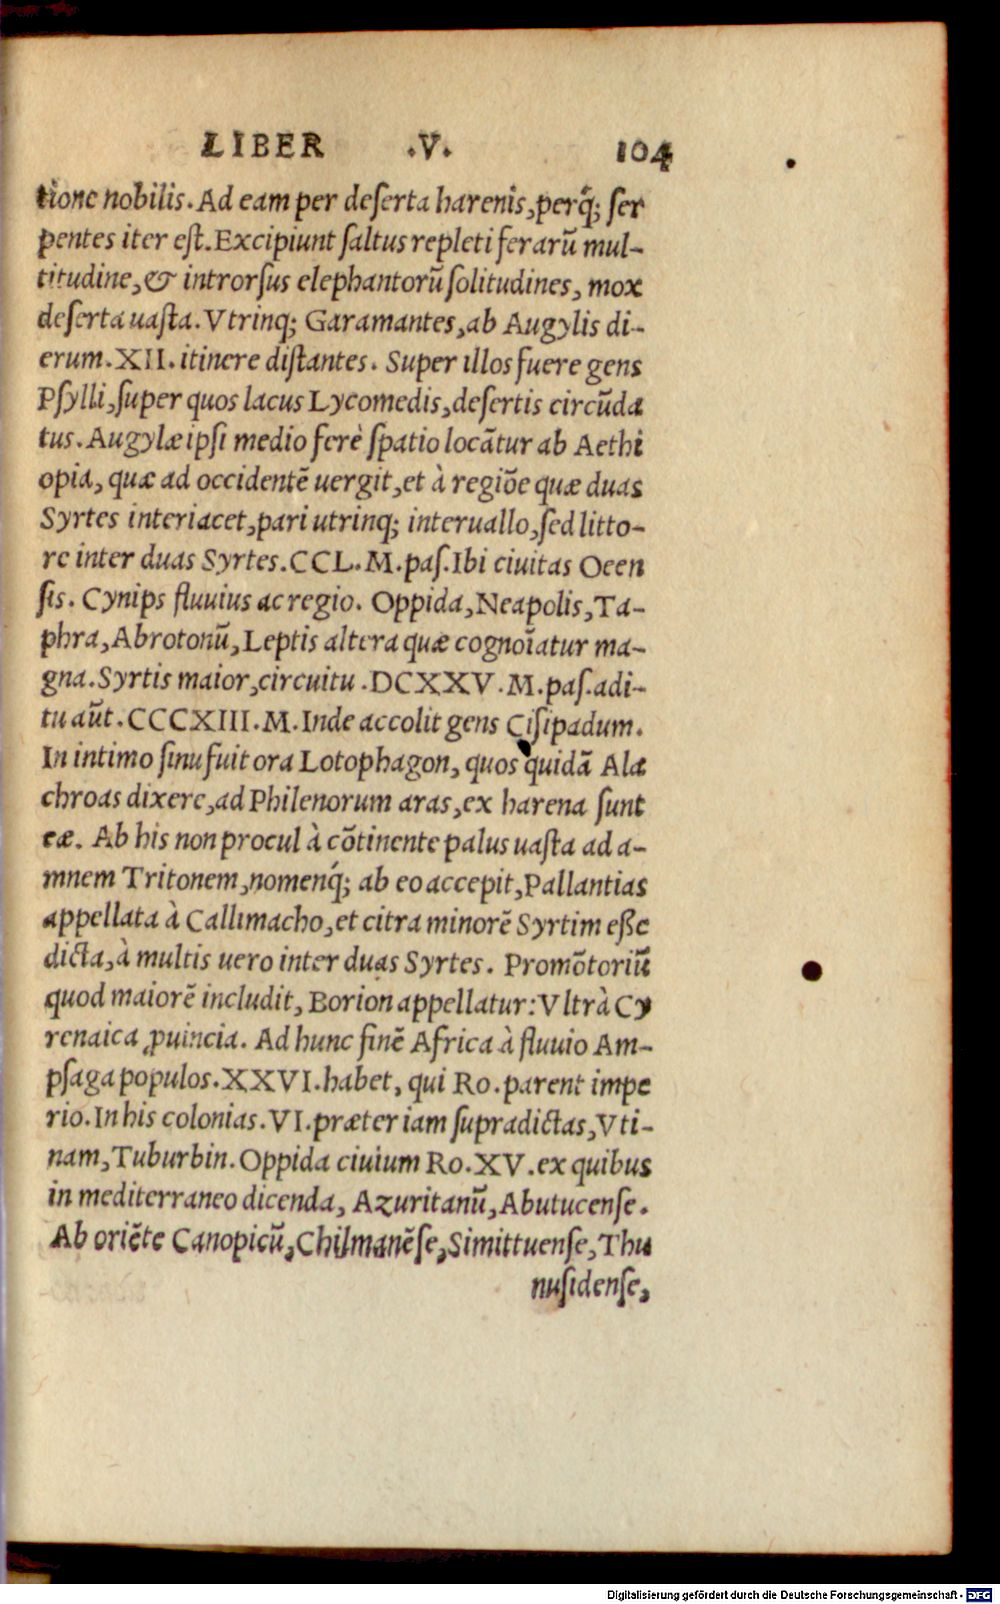 LIBER .V. 104
tione nobilis. Ad eam per deserta harenis, perq́; ser
pentes iter est. Excipiunt saltus repleti ferarũ mul-
titudine, & introrsus elephantorũ solitudines, mox
deserta uasta. Vtrinq; Garamantes, ab Augylis di-
erum .XII. itinere distantes. Super illos fuere gens
Psylli, super quos lacus Lycomedis, desertis circũda
tus. Augylæ ipsi medio ferè spatio locãtur ab Aethi
opia, quæ ad occidentẽ uergit, et à regiõe quæ duas
Syrtes interiacet, pari utrinq; interuallo, sed litto-
re inter duas Syrtes. CCL. M. pas. Ibi ciuitas Oeen
sis. Cynips fluuius ac regio. Oppida, Neapolis, Ta-
phra, Abrotonũ, Leptis altera quæ cognoĩatur ma-
gna. Syrtis maior, circuitu .DCXXV. M. pas. adi-
tu aũt. CCCXIII. M. Inde accolit gens Cisipadum.
In intimo sinu fuit ora Lotophagon, quos quidã Alæ
chroas dixere, ad Philenorum aras, ex harena sunt
eæ. Ab his non procul à cõtinente palus uasta ad a-
mnem Tritonem, nomenq́; ab eo accepit, Pallantias
appellata à Callimacho, et citra minorẽ Syrtim esse
dicta, à multis uero inter duas Syrtes. Promõtoriũ
quod maiorẽ includit, Borion appellatur: Vltrà Cy
renaica ꝓuincia. Ad hunc finẽ Africa à fluuio Am-
psaga populos. XXVI. habet, qui Ro. parent impe
rio. In his colonias. VI. præter iam supradictas, Vti-
nam, Tuburbin. Oppida ciuium Ro. XV. ex quibus
in mediterraneo dicenda, Azuritanũ, Abutucense.
Ab oriẽte Canopicũ, Chilmanẽse, Simittuense, Thu
nusidense,
Digitalisierung gefördert durch die Deutsche Forschungsgemeinschaft - DFG